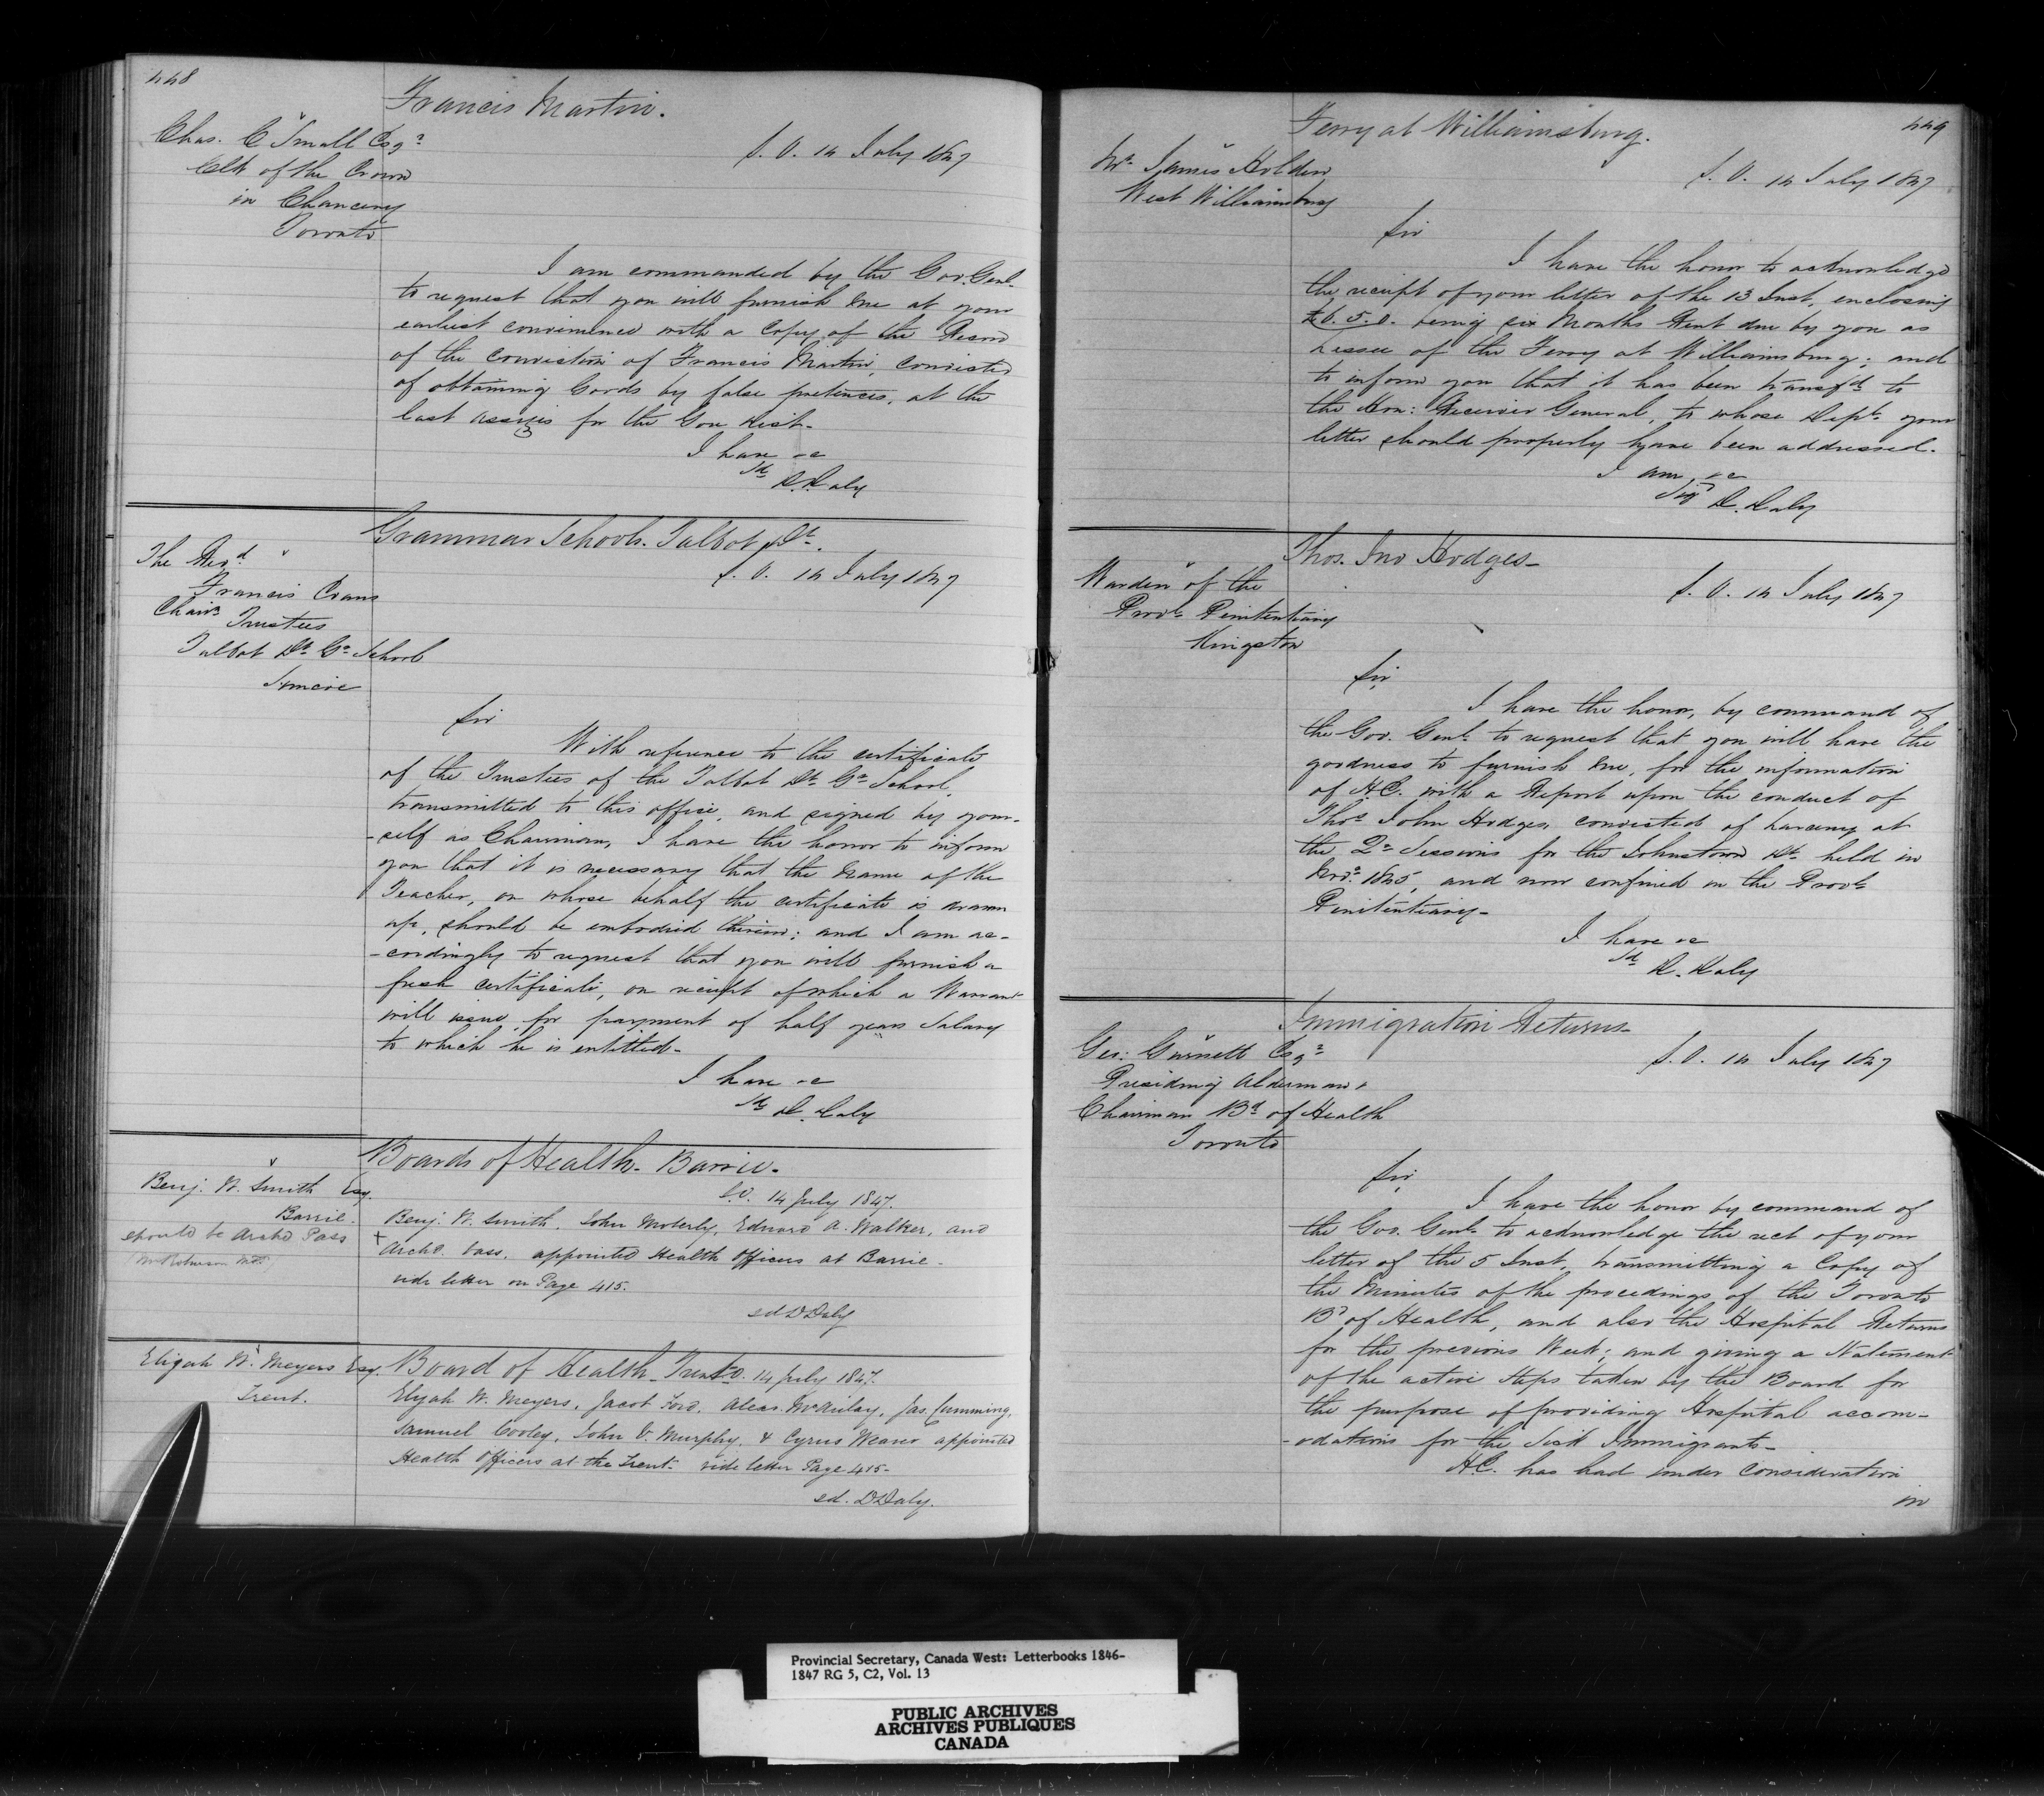 448
Francis Martin.
Chas. C Small Esqr
Clk of the Crown
in Chancery
Toronto
S. O. 14 July 1847
I am commanded by the Gov. Genl.
to request that you will furnish me at your
earliest convenience with a Copy of the Record
of the conviction of Francis Martin, convicted
of obtaining Goods by false pretences, at the
last assizes for the Gore Dist.
I have &c
Sd
D. Daly
Grammar School. Talbot Dt.
The Revd
Francis Evans
Chairn Trustees
Talbot Dt Gr School
Simcoe
S. O. 14 July 1847
Sir
With reference to the certificate
of the Trustees of the Talbot Dt. Gr School,
transmitted to this office, and signed by your-
-self as Chairman, I have the honor to inform
you that it is necessary that the name of the
Teacher, on whose behalf the certificate is drawn
up, should be embodied therein; and I am ac-
-cordingly to request that you will furnish a
fresh certificate, on receipt of which a Warrant
will issue for payment of half years Salary
to which he is entitled-
I have &c
Sd D. Daly
Boards of Health. Barrie.
Benj. W. Smith Esq.
Barrie.
should be Archd Pass
S.O. 14 July 1847.
Benj. W. Smith, John Moberly, Edward A. Walker, and
+ Archd. Pass. appointed Health Officers at Barrie.
vide letter on Page 415.
sd D Daly
Elijah W. Meyers Esq.
Trent.
Board of Health. Trent S.O. 14 July 1847.
Elijah W. Meyers, Jacob Ford, Alexr. McAulay, Jas. Cumming,
Samuel Cooley, John V. Murphy, & Cyrus Weaver appointed
Health Officers at the Trent. vide letter Page 415-
sd. D Daly.
449
Ferry at Williamsburg.
Mr James Holden
West Williamsburg
S. O. 14 July 1847
Sir
I have the honor to acknowledge
the receipt of your letter of the 13 Inst, enclosing
being six Months Rent due by you as
Lessee of the Ferry at Williamsburg; and
to inform you that it has been transfd to
the Hon: Receiver General, to whose Dept. your
letter should properly have been addressed.
I am, &c
Sigd D. Daly
Thos. Jno Hodges-
Warden of the
Provl Penitentiary
Kingston
S. O. 14 July 1847
Sir,
I have the honor, by command of
the Gov. Genl. to request that you will have the
goodness to furnish me, for the information
of H.E. with a Report upon the conduct of
Thos John Hodges, convicted of Larceny at
the Qr Sessions for the Johnstown Dt. held in
Novr. 1845, and now confined in the Provl
Penitentiary-
I have &c
Sd
D. Daly
Immigration Returns-
Geo: Gurnett Esqr
Presiding Alderman &
Chairman Bd of Health
Toronto
S. O. 14 July 1847
Sir,
I have the honor by command of
the Gov. Genl. to acknowledge the rect of your
letter of the 5 Inst., transmitting a Copy of
the Minutes of the proceedings of the Toronto
Bd of Health, and also the Hospital Returns
for the previous Week; and giving a Statement
of the active steps taken by the Board for
the purpose of providing Hospital accom-
-odations for the Sick Immigrants-
H.E. has had under consideration
in
Provincial Secretary, Canada West: Letterbooks 1846-
1847 RG 5, C2, Vol. 13
PUBLIC ARCHIVES
ARCHIVES PUBLIQUES
CANADA